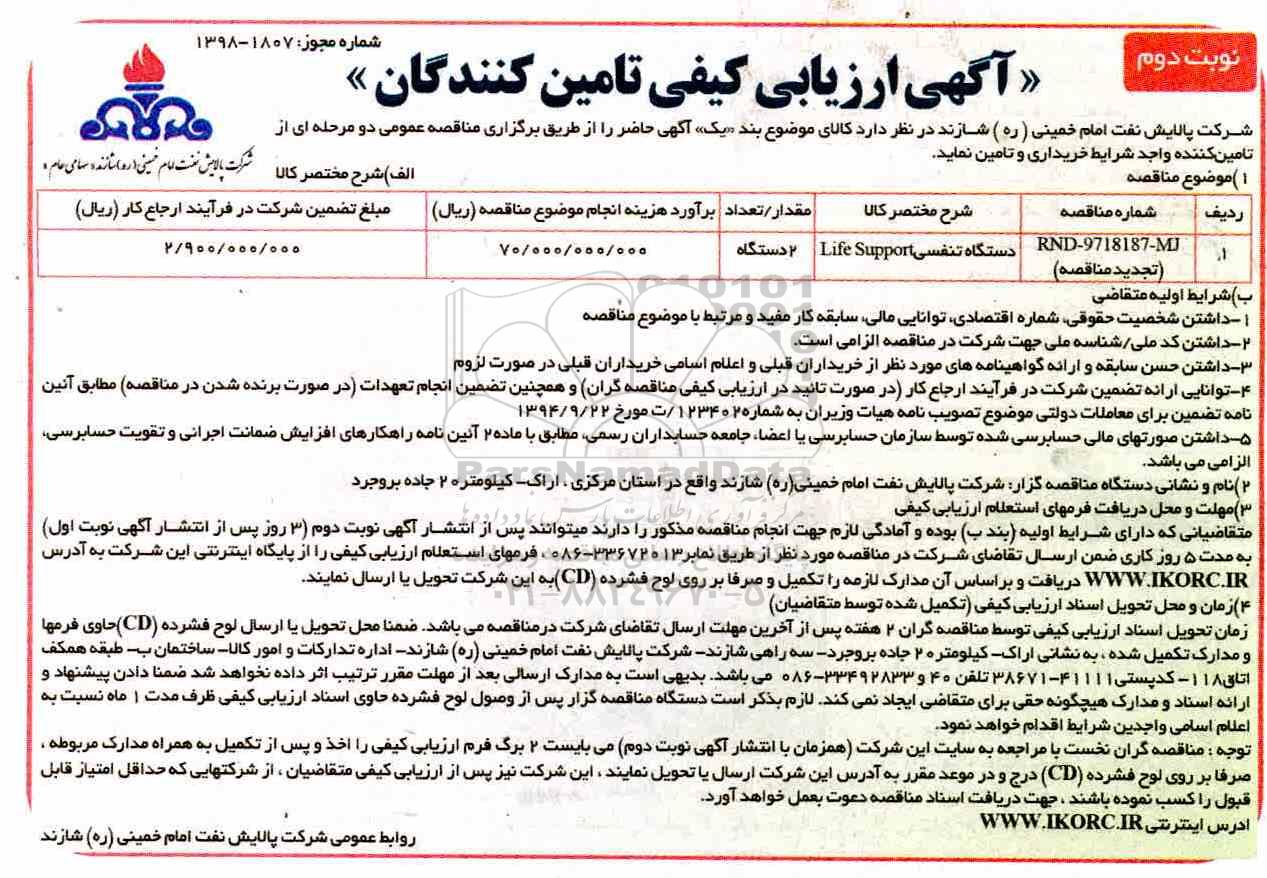 نوبت دوم
شماره مجوز: ۱۸۰۷-۱۳۹۸
«آگهی ارزیابی کیفی تامین کنندگان»
شرکت پالایش نفت امام خمینی (ره) شازند «سهامی عام»
شرکت پالایش نفت امام خمینی (ره) شازند در نظر دارد کالای موضوع بند «یک» آگهی حاضر را از طریق برگزاری مناقصه عمومی دو مرحله ای از
تامین‌کننده واجد شرایط خریداری و تامین نماید.
۱)موضوع مناقصه
الف)شرح مختصر کالا
ردیف شماره مناقصه شرح مختصر کالا مقدار/تعداد برآورد هزینه انجام موضوع مناقصه (ریال) مبلغ تضمین شرکت در فرآیند ارجاع کار (ریال)
۱. RND-9718187-MJ دستگاه تنفسی Life Support ۲دستگاه ۷۰/۰۰۰/۰۰۰/۰۰۰ ۲/۹۰۰/۰۰۰/۰۰۰
(تجدید مناقصه)
ب)شرایط اولیه متقاضی
۱-داشتن شخصیت حقوقی، شماره اقتصادی، توانایی مالی، سابقه کار مفید و مرتبط با موضوع مناقصه
۲-داشتن کد ملی/شناسه ملی جهت شرکت در مناقصه الزامی است.
۳-داشتن حسن سابقه و ارائه گواهینامه های مورد نظر از خریداران قبلی و اعلام اسامی خریداران قبلی در صورت لزوم
۴-توانایی ارائه تضمین شرکت در فرآیند ارجاع کار (در صورت تائید در ارزیابی کیفی مناقصه گران) و همچنین تضمین انجام تعهدات (در صورت برنده شدن در مناقصه) مطابق آئین
نامه تضمین برای معاملات دولتی موضوع تصویب نامه هیات وزیران به شماره۱۲۳۴۰۲/ت مورخ ۱۳۹۴/۹/۲۲
۵-داشتن صورتهای مالی حسابرسی شده توسط سازمان حسابرسی یا اعضاء جامعه حسابداران رسمی، مطابق با ماده۲ آئین نامه راهکارهای افزایش ضمانت اجرائی و تقویت حسابرسی،
الزامی می باشد.
۲)نام و نشانی دستگاه مناقصه گزار: شرکت پالایش نفت امام خمینی(ره) شازند واقع در استان مرکزی ، اراک- کیلومتر۲۰ جاده بروجرد
۳)مهلت و محل دریافت فرمهای استعلام ارزیابی کیفی
متقاضیانی که دارای شرایط اولیه (بند ب) بوده و آمادگی لازم جهت انجام مناقصه مذکور را دارند میتوانند پس از انتشار آگهی نوبت دوم (۳ روز پس از انتشار آگهی نوبت اول)
به مدت ۵ روز کاری ضمن ارسال تقاضای شرکت در مناقصه مورد نظر از طریق نمابر۳۳۶۷۲۰۱۳-۰۸۶ ، فرمهای استعلام ارزیابی کیفی را از پایگاه اینترنتی این شرکت به آدرس
WWW.IKORC.IR دریافت و براساس آن مدارک لازمه را تکمیل و صرفا بر روی لوح فشرده (CD)به این شرکت تحویل یا ارسال نمایند.
۴)زمان و محل تحویل اسناد ارزیابی کیفی (تکمیل شده توسط متقاضیان)
زمان تحویل اسناد ارزیابی کیفی توسط مناقصه گران ۲ هفته پس از آخرین مهلت ارسال تقاضای شرکت درمناقصه می باشد. ضمنا محل تحویل یا ارسال لوح فشرده (CD)حاوی فرمها
و مدارک تکمیل شده ، به نشانی اراک- کیلومتر۲۰ جاده بروجرد- سه راهی شازند- شرکت پالایش نفت امام خمینی (ره) شازند- اداره تدارکات و امور کالا- ساختمان ب- طبقه همکف
اتاق۱۱۸- کدپستی۴۱۱۱۱-۳۸۶۷۱ تلفن ۴۰ و ۳۳۴۹۲۸۳۳-۰۸۶ می باشد. بدیهی است به مدارک ارسالی بعد از مهلت مقرر ترتیب اثر داده نخواهد شد ضمنا دادن پیشنهاد و
ارائه اسناد و مدارک هیچگونه حقی برای متقاضی ایجاد نمی کند. لازم بذکر است دستگاه مناقصه گزار پس از وصول لوح فشرده حاوی اسناد ارزیابی کیفی ظرف مدت ۱ ماه نسبت به
اعلام اسامی واجدین شرایط اقدام خواهد نمود.
توجه : مناقصه گران نخست با مراجعه به سایت این شرکت (همزمان با انتشار آگهی نوبت دوم) می بایست ۲ برگ فرم ارزیابی کیفی را اخذ و پس از تکمیل به همراه مدارک مربوطه ،
صرفا بر روی لوح فشرده (CD) درج و در موعد مقرر به آدرس این شرکت ارسال یا تحویل نمایند ، این شرکت نیز پس از ارزیابی کیفی متقاضیان ، از شرکتهایی که حداقل امتیاز قابل
قبول را کسب نموده باشند ، جهت دریافت اسناد مناقصه دعوت بعمل خواهد آورد.
ادرس اینترنتی WWW.IKORC.IR
روابط عمومی شرکت پالایش نفت امام خمینی (ره) شازند
ParsNamadData
۰۲۱-۸۸۳۴۹۶۷۰-۵